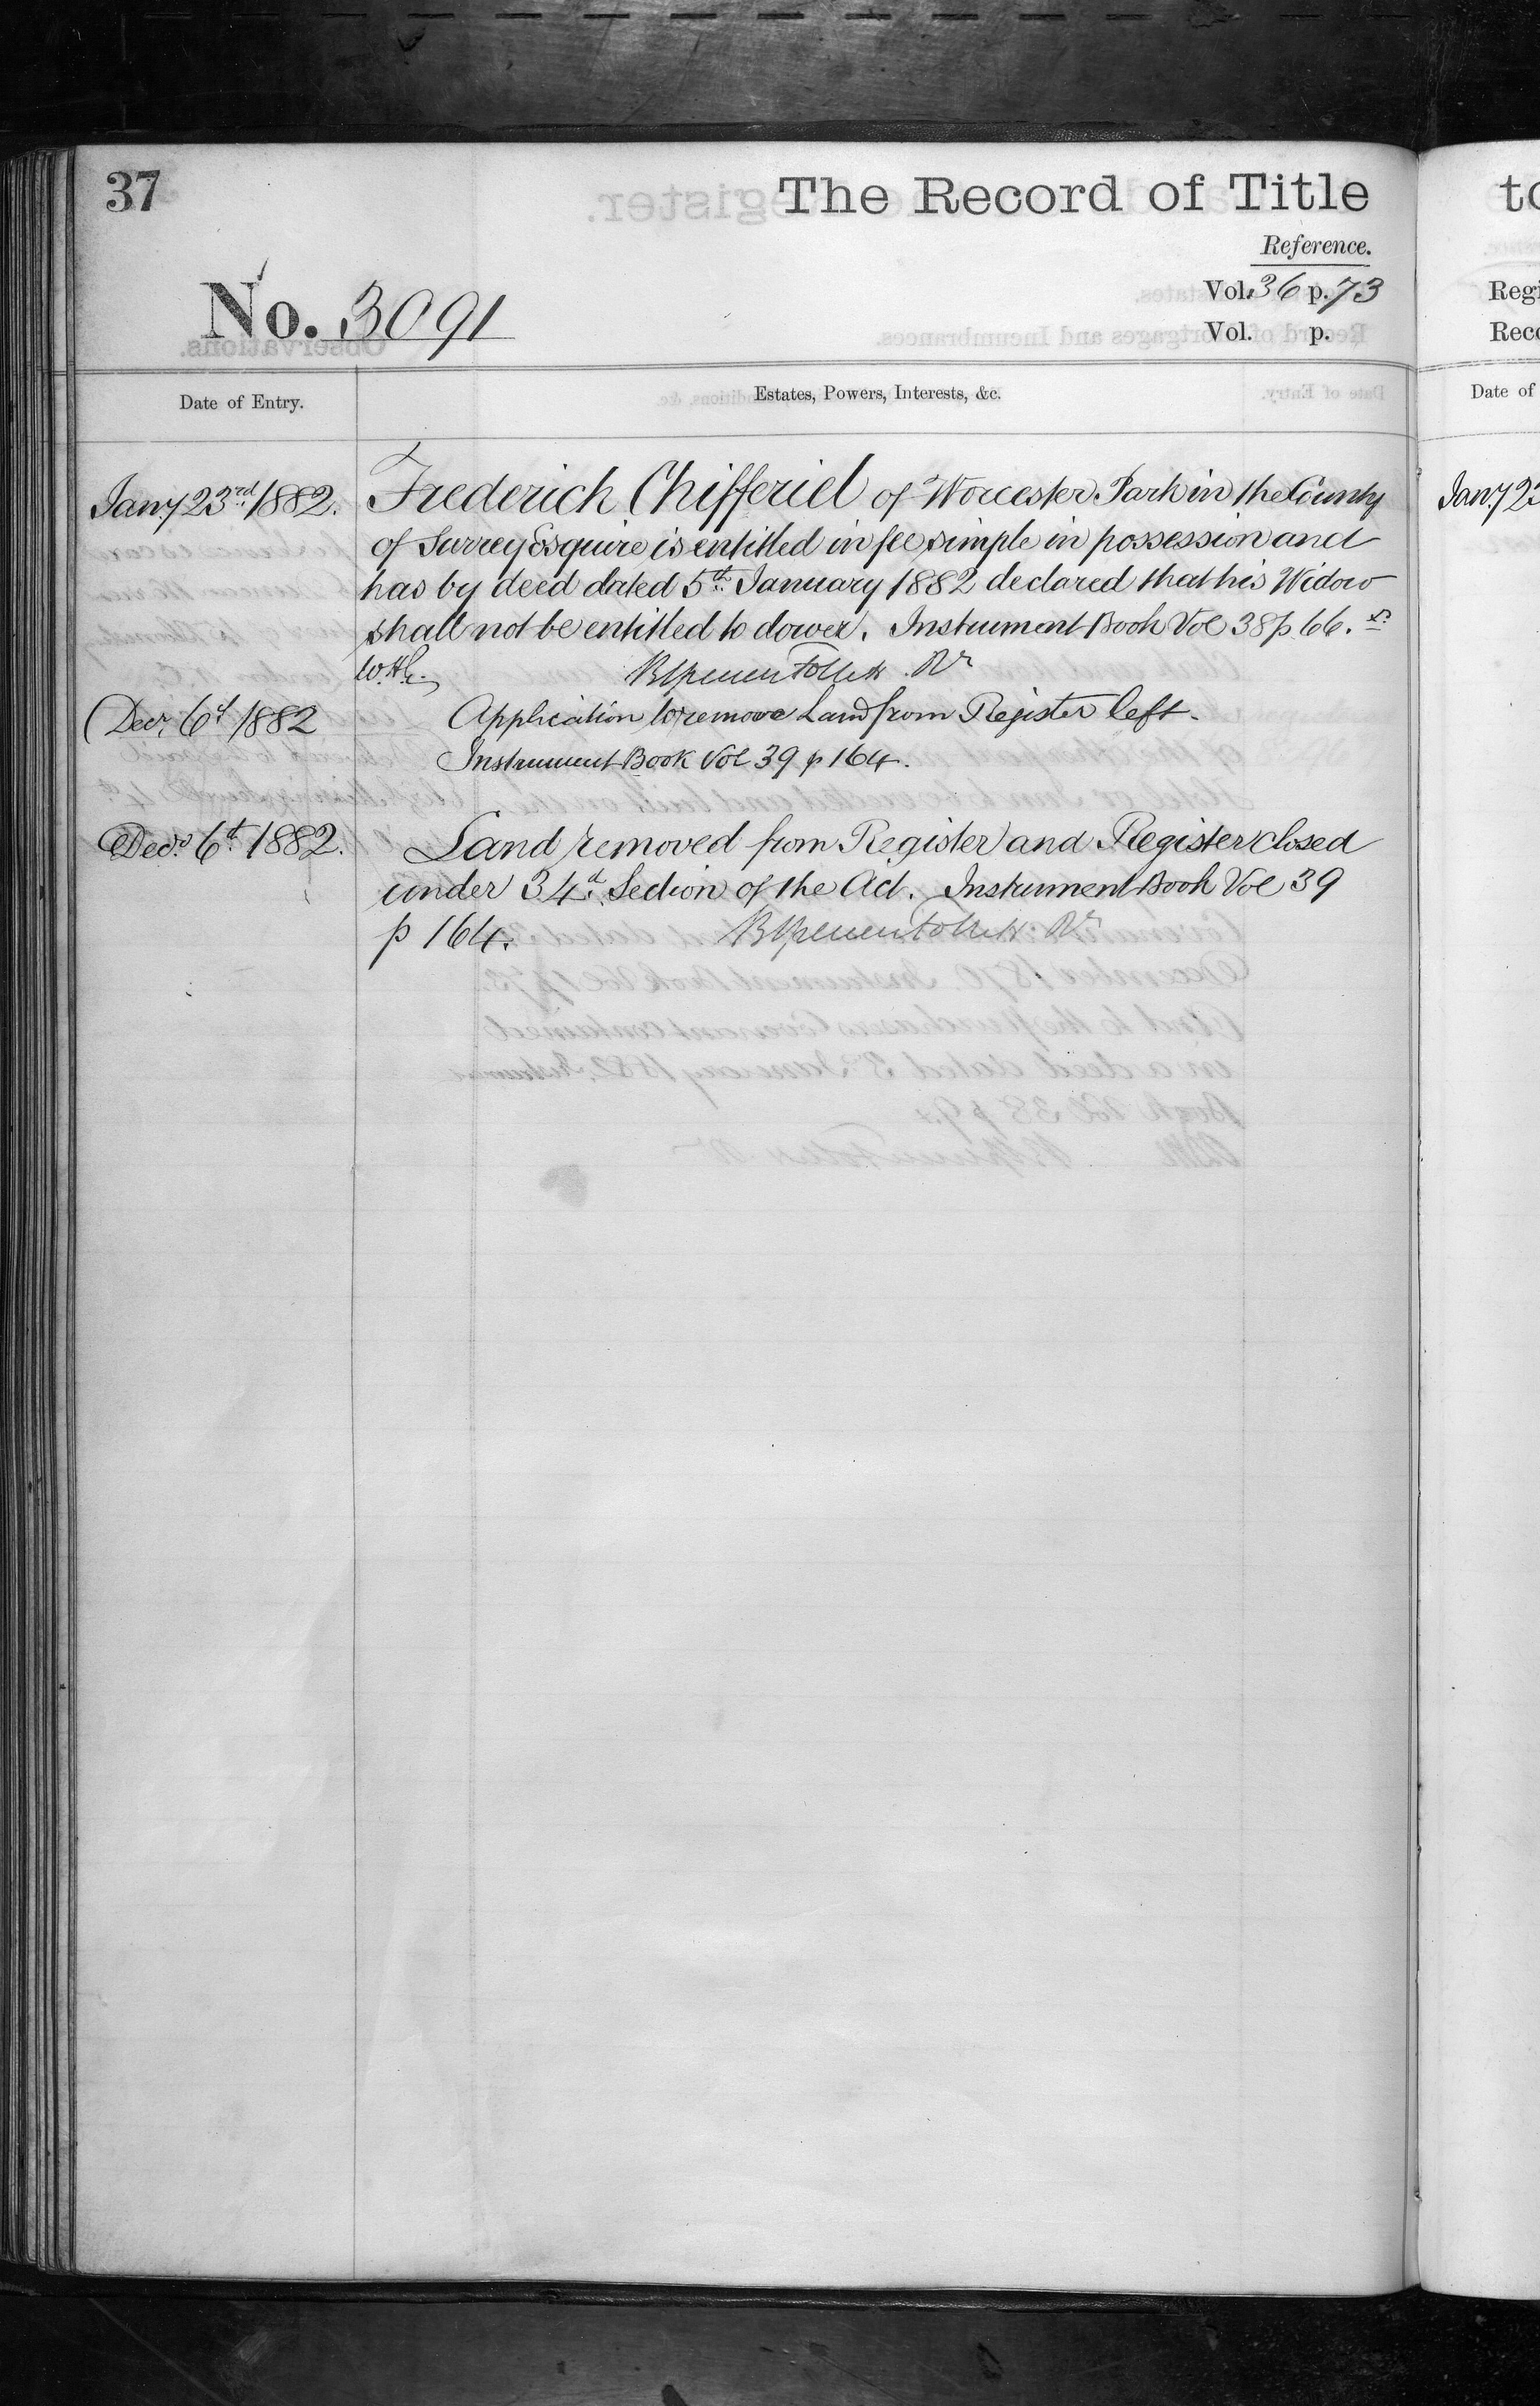 37
The Record of Title
Reference.
No. 3091
Vol. 36 p. 73
Vol. p.
Date of Entry.
Estates, Powers, Interests, &c.
Jany 23rd 1882.
Frederick Chifferiel of Worcester Park in the County
of Surrey Esquire is entitled in fee simple in possession and
has by deed dated 5th January 1882 declared that his Widow
shall not be entitled to dower. Instrument Book Vol 38 p 66.
Follett Rr
Decr 6th 1882
Application to remove Land from Register left.
Instrument Book Vol 39 p 164.
Decr 6th 1882.
Land removed from Register and Register closed
under 34th Section of the Act. Instrument Book Vol 39
p 164.
Follett Rr
to
Regi
Reco
Date of
Jany 23